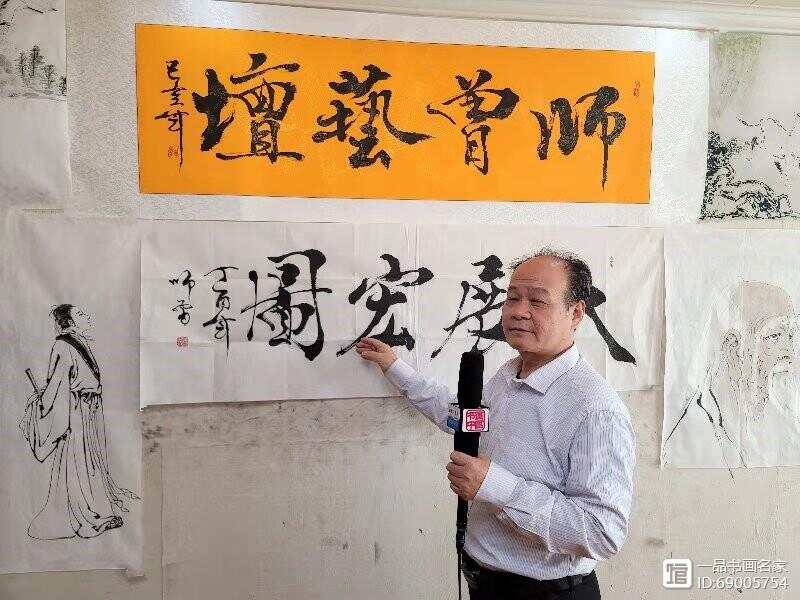 师曾藝壇
己亥年
大展宏圖
丁酉年
师曾
一品书画名家
ID:69005754